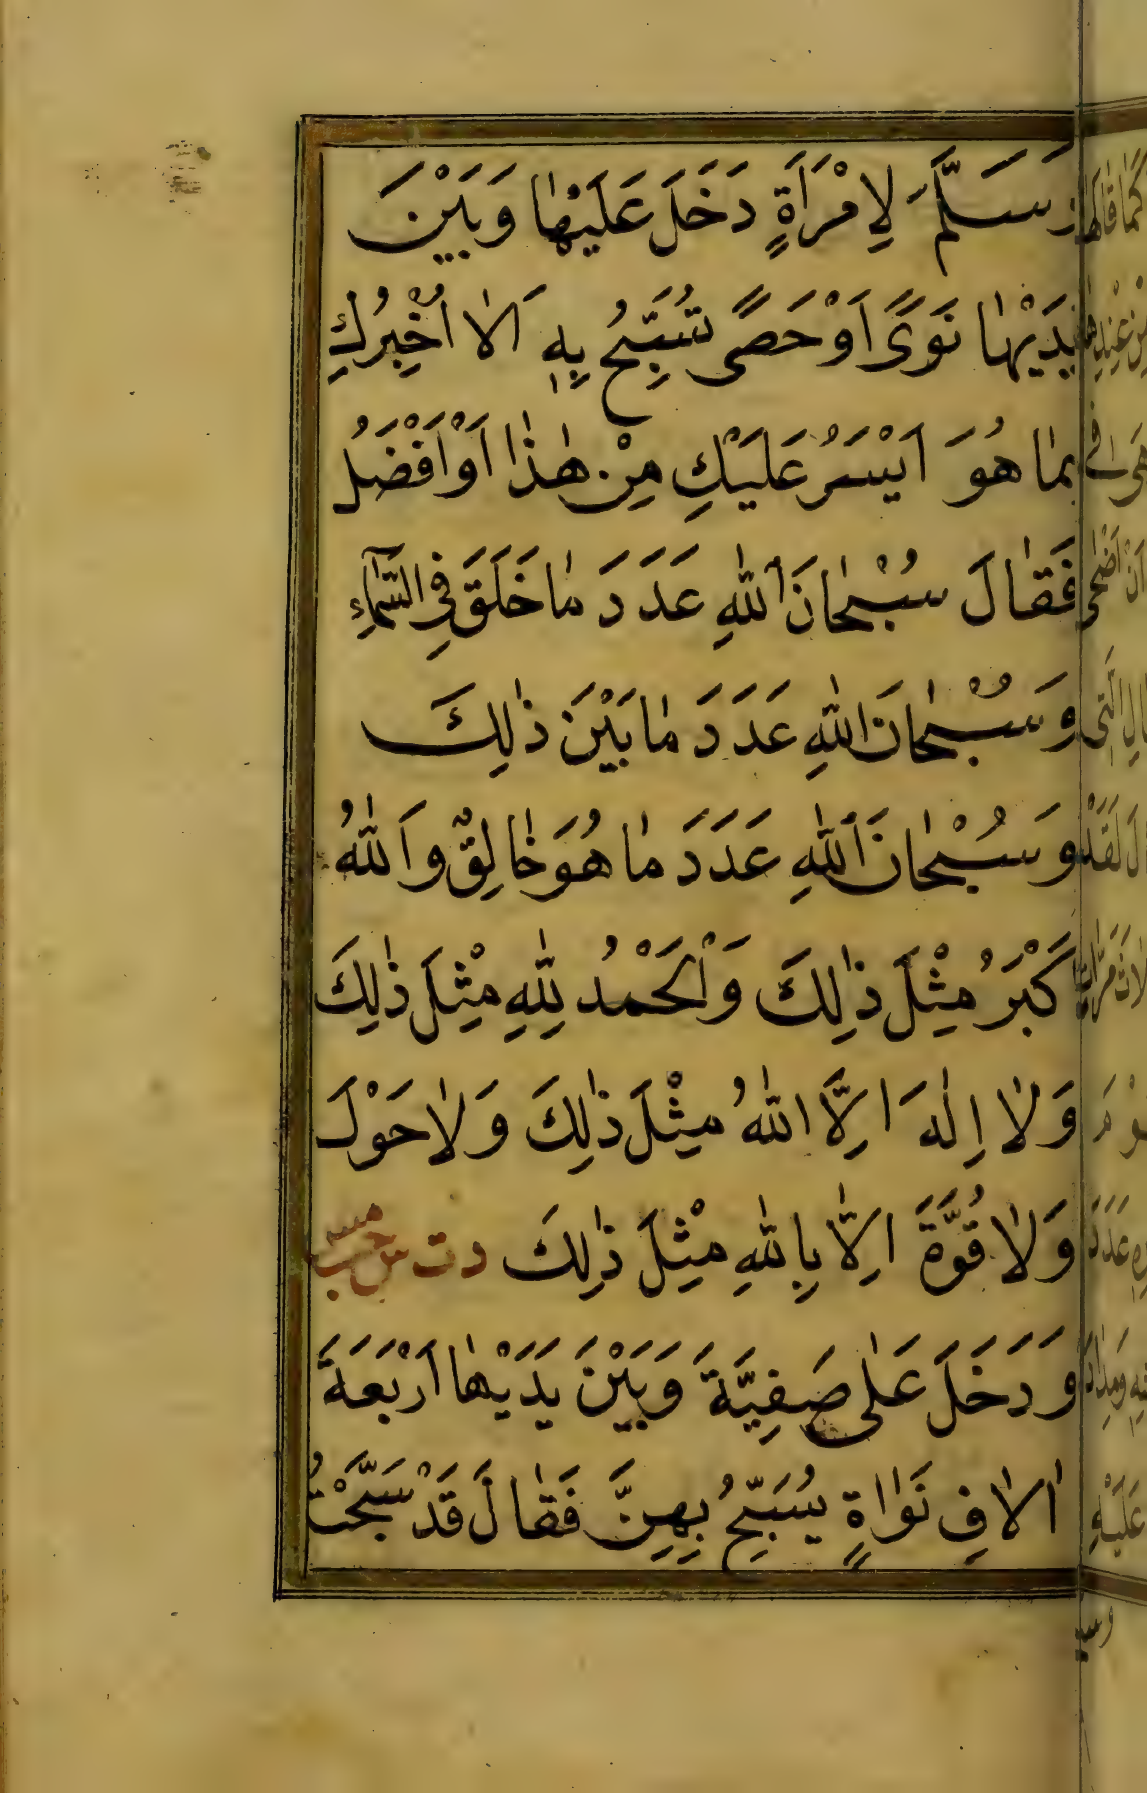 وَسَلَّمَ لِامْرَاَةٍ دَخَلَ عَلَيْهٰا وَبَيْنَ
يَدَيْهٰا نَوًى اَوْ حَصًى تُسَبِّحُ بِهٖ اَلاٰ اُخْبِرُكِ
بِمٰا هُوَ اَيْسَرُ عَلَيْكِ مِنْ هٰذٰا اَوْ اَفْضَلُ
فَقٰالَ سُبْحٰانَ اللّٰهِ عَدَدَ مٰا خَلَقَ فِي السَّمٰٓاءِ
وَسُبْحٰانَ اللّٰهِ عَدَدَ مٰا بَيْنَ ذٰلِكَ
وَسُبْحٰانَ اللّٰهِ عَدَدَ مٰا هُوَ خٰالِقٌ وَاَللّٰهُ
كْبَرُ مِثْلَ ذٰلِكَ وَالْحَمْدُ لِلّٰهِ مِثْلَ ذٰلِكَ
وَلاٰ اِلٰهَ اِلَّا اللّٰهُ مِثْلَ ذٰلِكَ وَلاٰ حَوْلَ
وَلاٰ قُوَّةَ اِلّاٰ بِاللّٰهِ مِثْلَ ذٰلِكَ د ت س حب مس
وَدَخَلَ عَلٰى صَفِيَّةَ وَبَيْنَ يَدَيْهٰا اَرْبَعَةَ
اٰلاٰفِ نَوٰاةٍ يُسَبِّحُ بِهِنَّ فَقٰالَ قَدْ سَبَّحْتُ